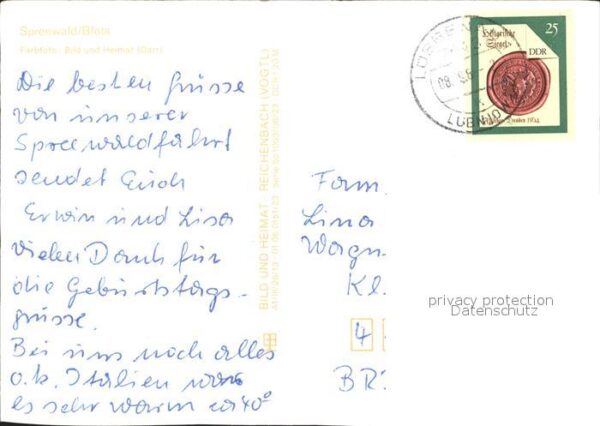 Spreewald/Bleta
Farbfoto: Bild und Heimat (Darr)
Die besten Grüsse
von unserer
Spreewaldfahrt
sendet Euch
Erwin und Lisa
vielen Dank für
die Geburtstags-
grüsse.
Bei uns noch alles
o.k. Italien war
es sehr warm 40°
BILD UND HEIMAT REICHENBACH (VOGTL)
25
DDR
LÜBBENAU
Fam.
Lina
Wagn
Kl.
4
BR
privacy protection
Datenschutz